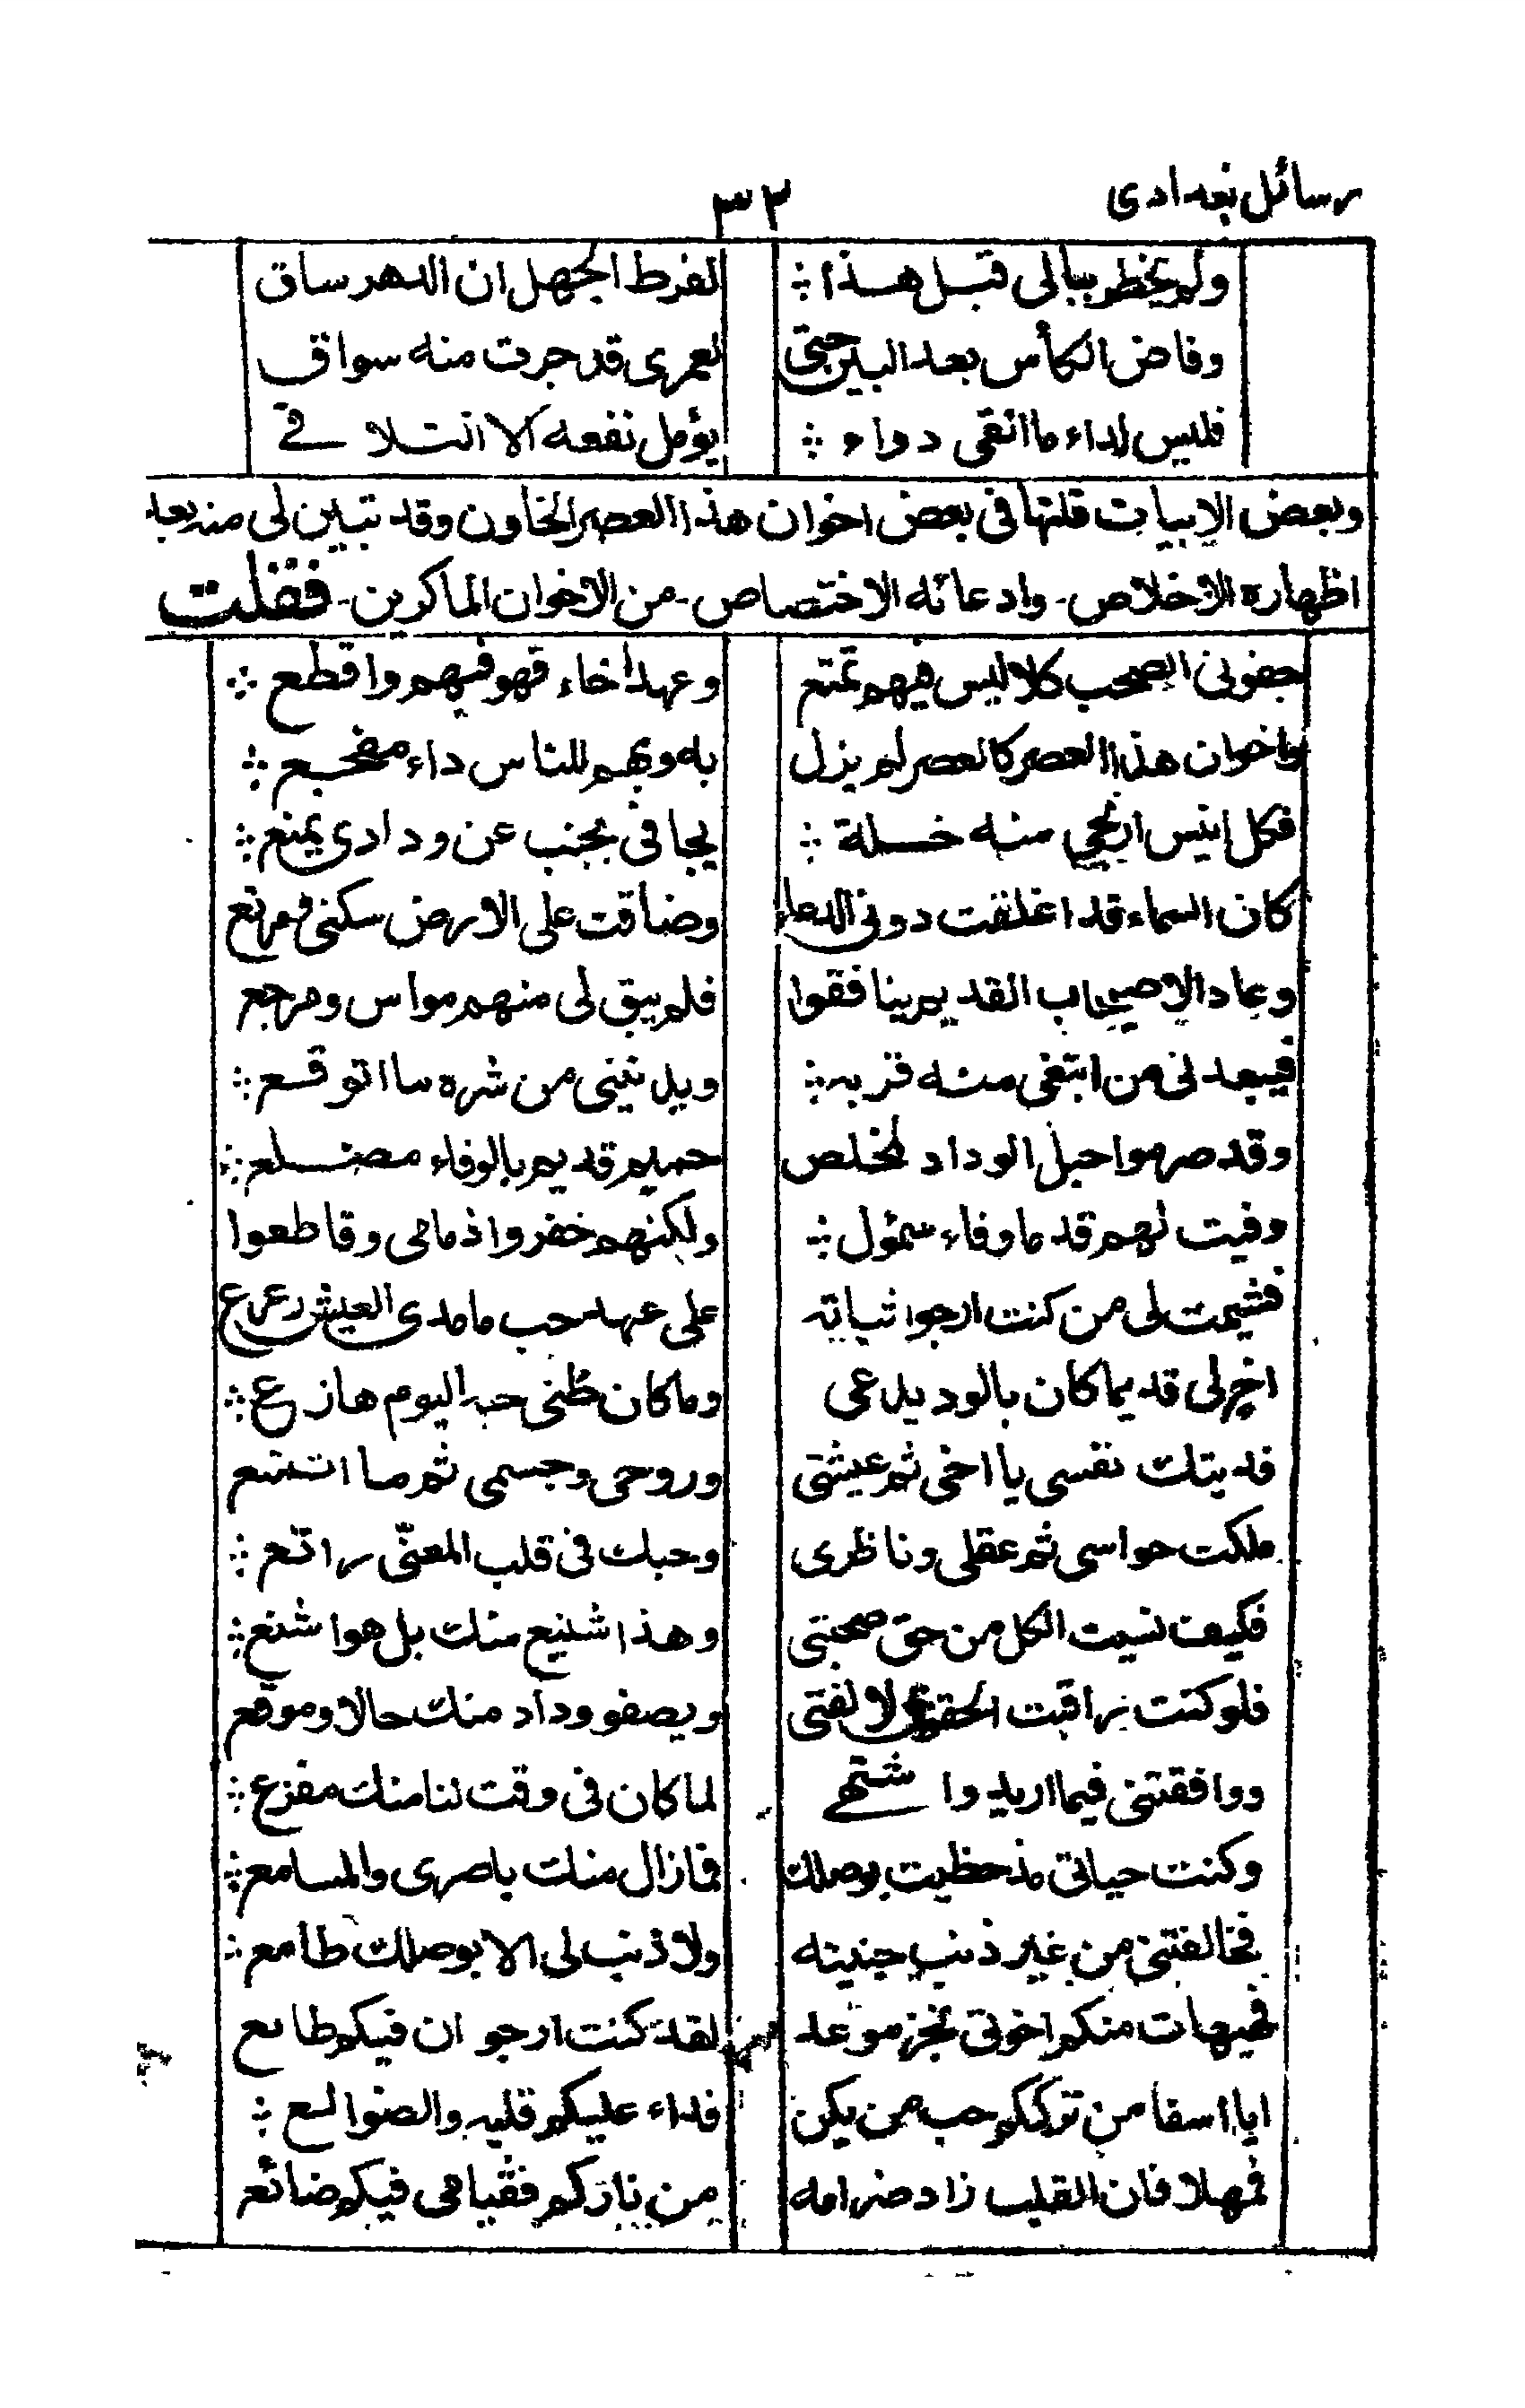 رسائل بغدادى ٣٣
ولم يخطر ببالى قبل هذا ؛ لفرط الجهل ان الدهر ساق
وفاض الكأس بعد البين حتى لعمرى قد جرت منه سواق
فليس لداء ما القى دواء ؛ يؤمل نفعه الا التلاقى
وبعض الابيات قلتها فى بعض اخوان هذا العصر الخاون وقد تبين لى منه بعد
اظهاره الاخلاص - وادعائه الاختصاص - من الاخوان الماكرين - فقلت
جفونى الصحب كلا ليس فيهم تمتع وعهد اخاء قهو فيهم واقطع
واخوان هذا العصر كالعصر لم يزل به وبهم للناس داء مفجع
فكل انيس ارتجى منه خلة يجافى بجنب عن ودادى يمنع
كان السماء قد اغلقت دونى الدعاء وضاقت على الارض سكنى ومرتع
وعاد الاصيحاب القديم ينافقوا فلم يبق لى منهم مواس ومرجع
فيبعدنى من ابتغى منه قربه ويدنينى من شره ما اتوقع
وقد صرموا حبل الوداد لمخلص حميم قديم بالوفاء مضلع
وفيت لهم قدما وفاء سمؤل ولكنهم خفروا ذمامى وقاطعوا
فشيمت لى من كنت ارجو ثباته على عهد حب ما مدى العيش رعرع
اخ لى قديما كان بالود يدعى وما كان ظنى حبه اليوم هازع
فديتك نفسى يا اخى ثم عيشتى وروحى وجسمى ثم ما اتمتع
ملكت حواسى ثم عقلى وناظرى وحبك فى قلب المعنّى راتع
فكيف نسيت الكل من حق صحبتى وهذا شنيع منك بل هو اشنع
فلو كنت راقبت الحقوق لالفتى ويصفو وداد منك حالا وموقع
ووافقتنى فيما اريد واشتهى لما كان فى وقت لنا منك مفزع
وكنت حياتى مذ حظيت بوصلك فما زال منك باصرى والمسامع
فخالفتنى من غير ذنب جنيته ولا ذنب لى الا بوصلك طامع
فهيهات منكم اخوتى نجز موعد لقد كنت ارجو ان فيكم طامع
ايا اسفا من ترككم حب من يكن فداء عليكم قلبه والضوالع
فمهلا فان القلب زاد ضرامه من ناركم فقيامى فيكم ضائع